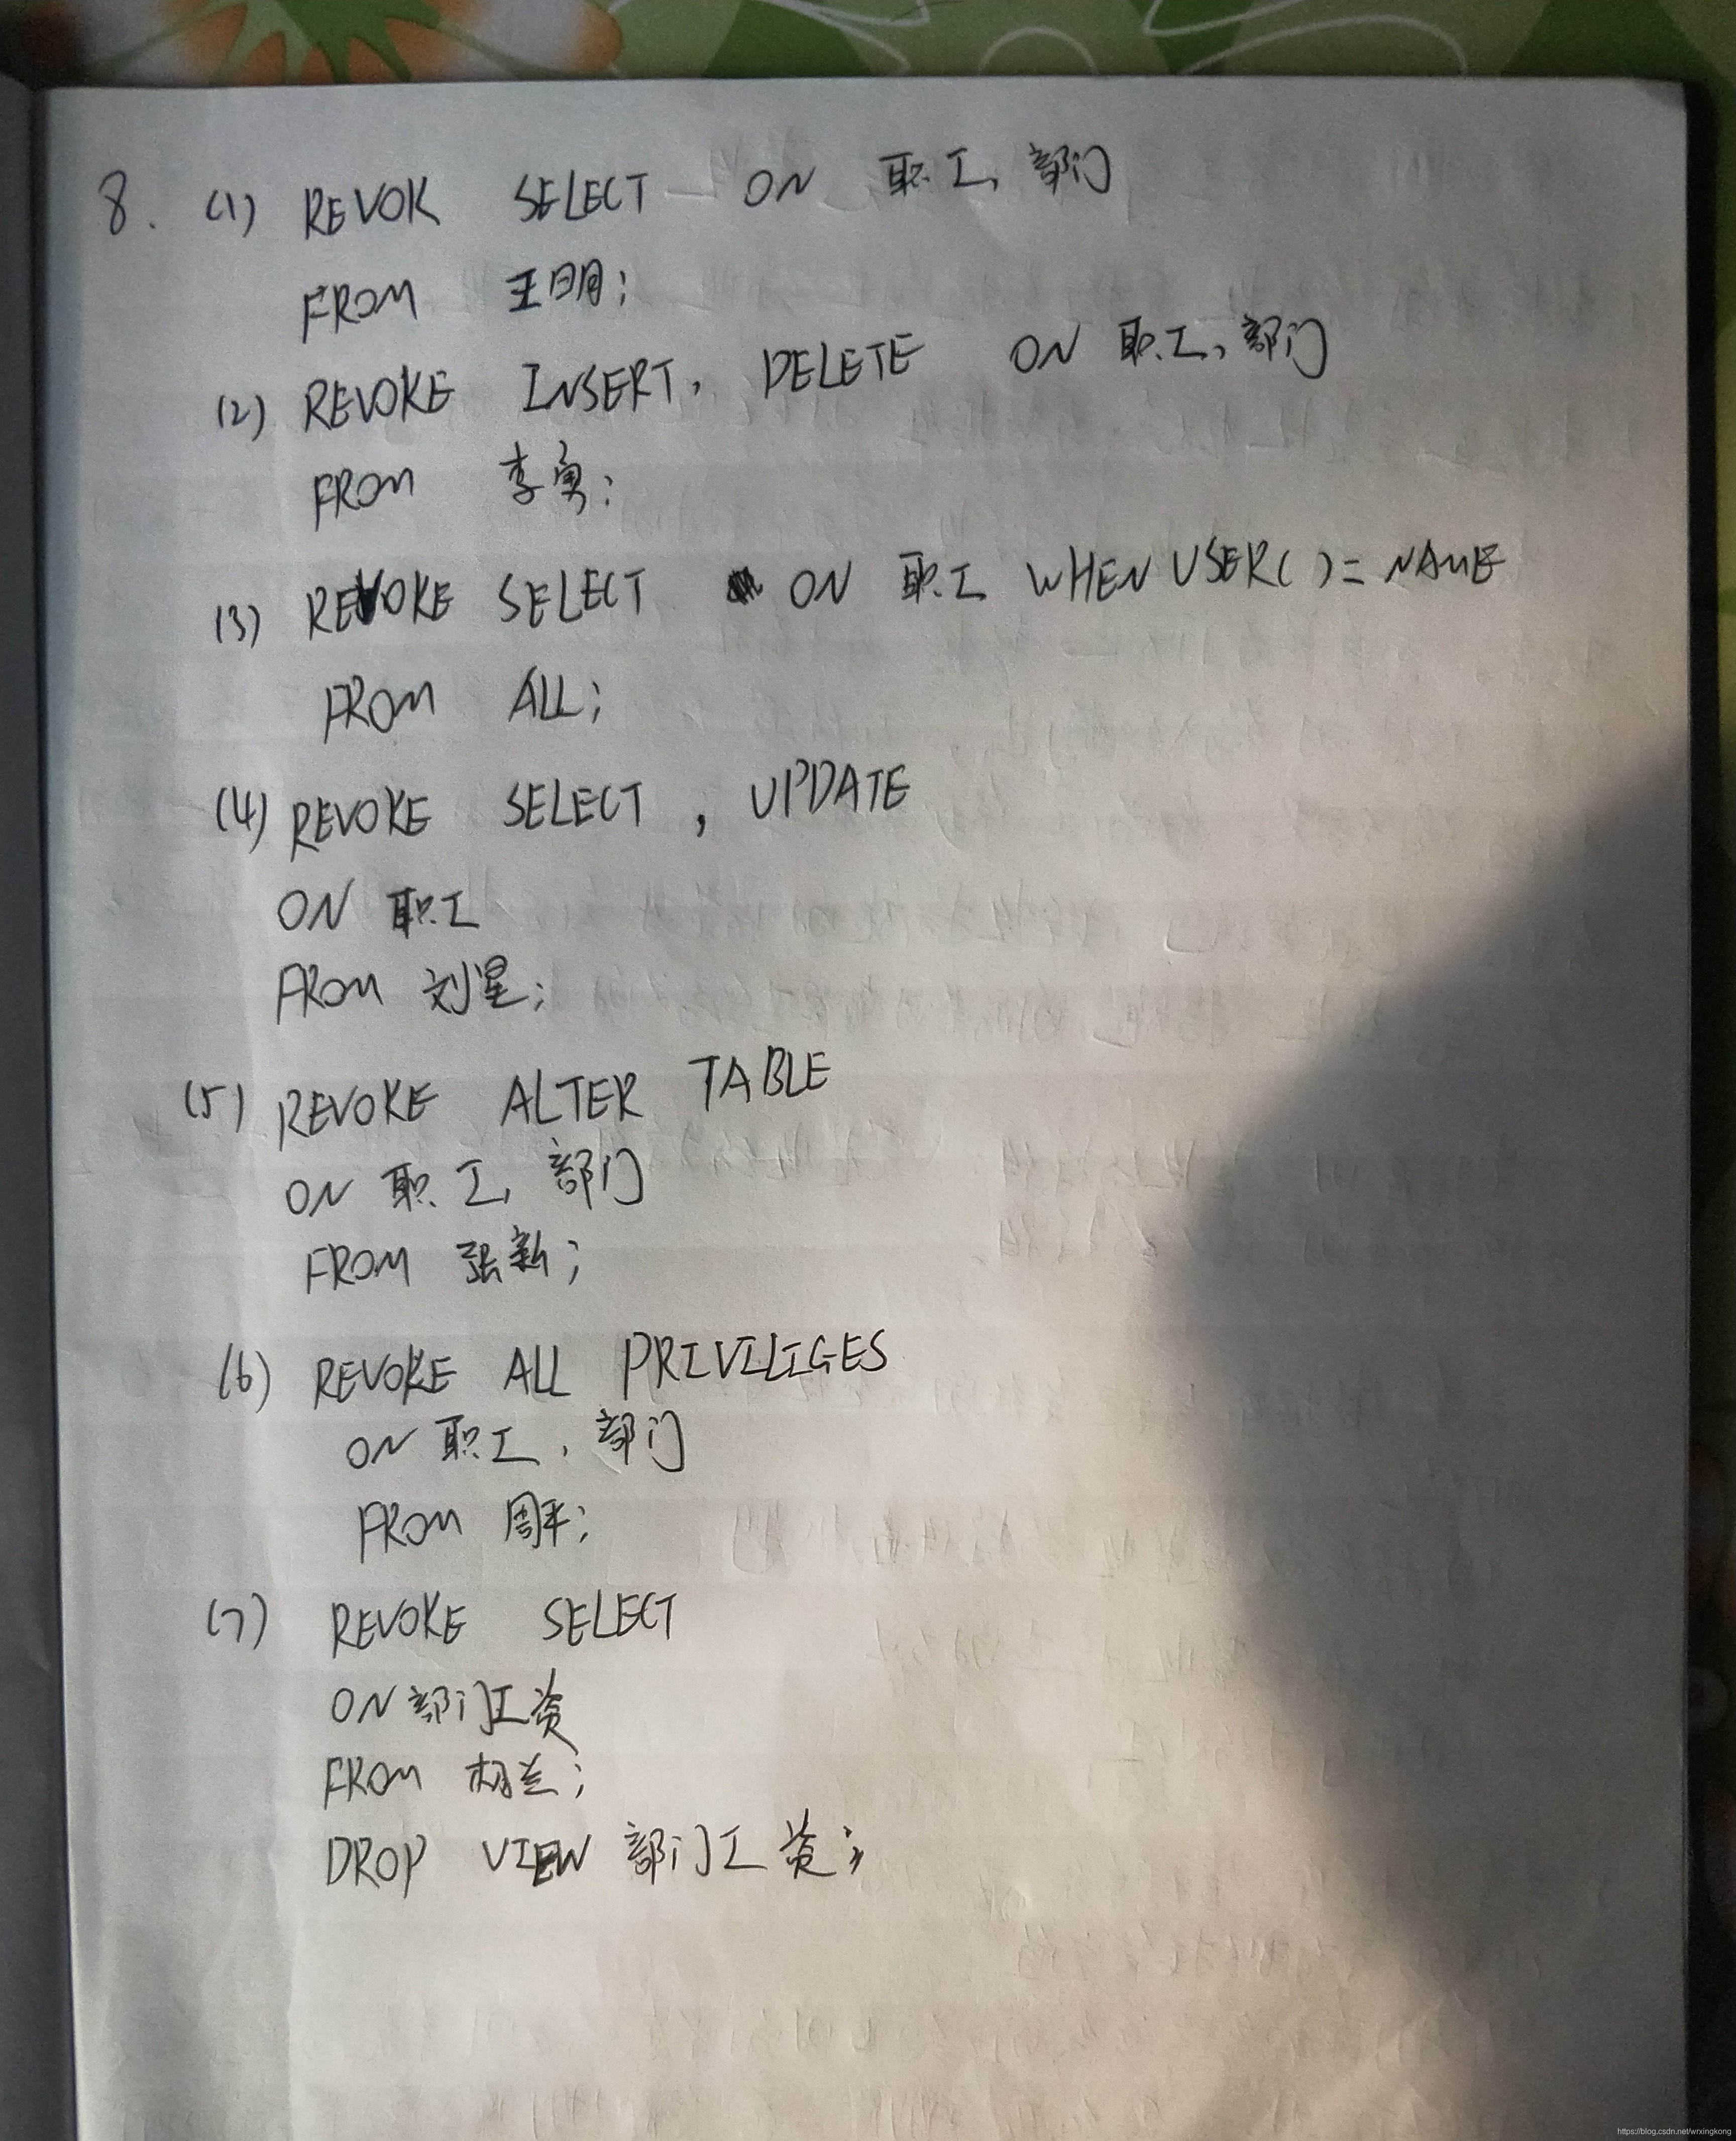 8. (1) REVOK SELECT ON 职工, 部门
FROM 王明;
(2) REVOKE INSERT, DELETE ON 职工, 部门
FROM 李勇;
(3) REVOKE SELECT ON 职工 WHEN USER()=NAME
FROM ALL;
(4) REVOKE SELECT, UPDATE
ON 职工
FROM 刘星;
(5) REVOKE ALTER TABLE
ON 职工, 部门
FROM 张新;
(6) REVOKE ALL PRIVILIGES
ON 职工, 部门
FROM 周平;
(7) REVOKE SELECT
ON 部门工资
FROM 杨兰;
DROP VIEW 部门工资;
https://blog.csdn.net/wrxingkong